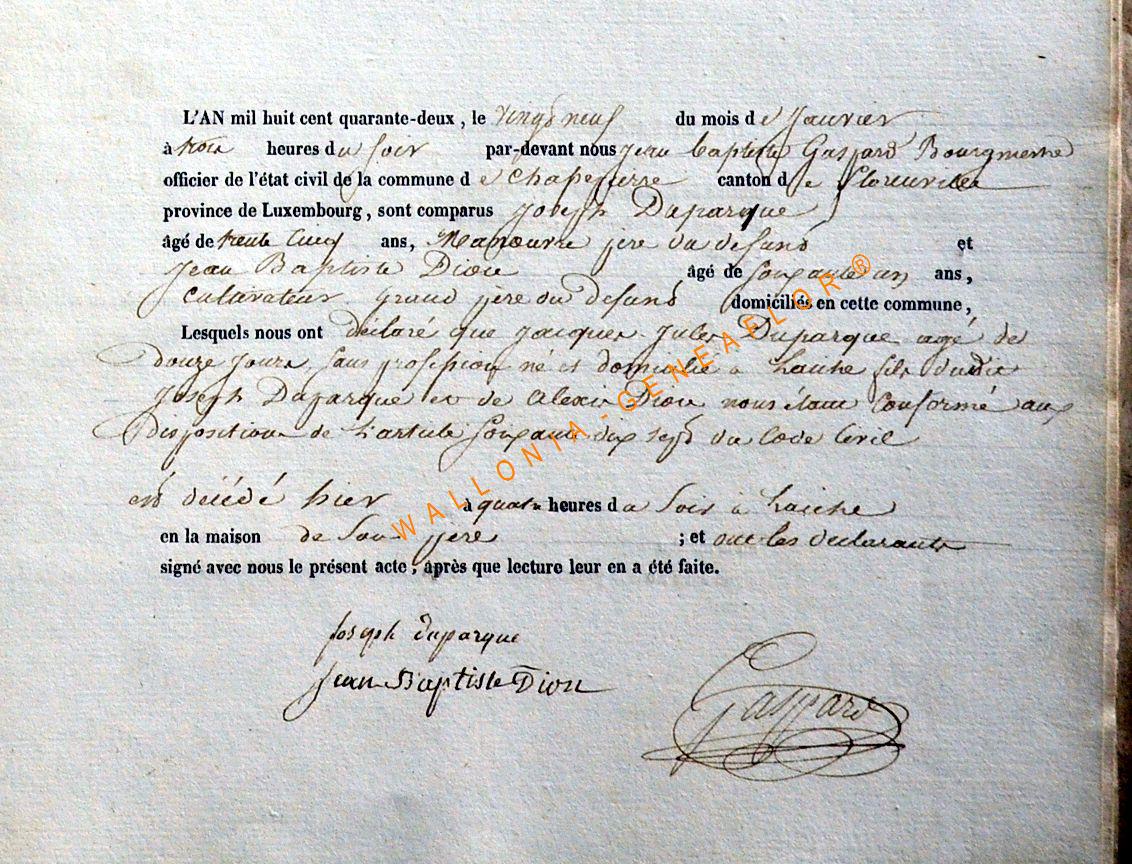 L'AN mil huit cent quarante-deux, le vingt neuf du mois de Janvier
à trois heures du soir par-devant nous jean baptiste Gaspard Bourgmestre
officier de l'état civil de la commune de chapepierre canton de florenville
province de Luxembourg, sont comparus Joseph Duparque
âgé de trente cinq ans, Manoeuvre père du defunt et
Jean Baptiste Dion âgé de soixante un ans,
cultivateur grand père du defunt domiciliés en cette commune,
Lesquels nous ont déclaré que jacques jules Duparque agé de
douze jours sans profession né et domicilié à Laiche fils dudit
Joseph Duparque et de alexis Dion nous étant conformé aux
disposition de l'article soixante dix sept du Code Civil
est décédé hier à quatre heures du soir à Laiche
en la maison de son père ; et ont les declarants
signé avec nous le présent acte, après que lecture leur en a été faite.
joseph duparque
jean Baptiste Dion
Gaspard
WALLONIA-GENEAFLOR®